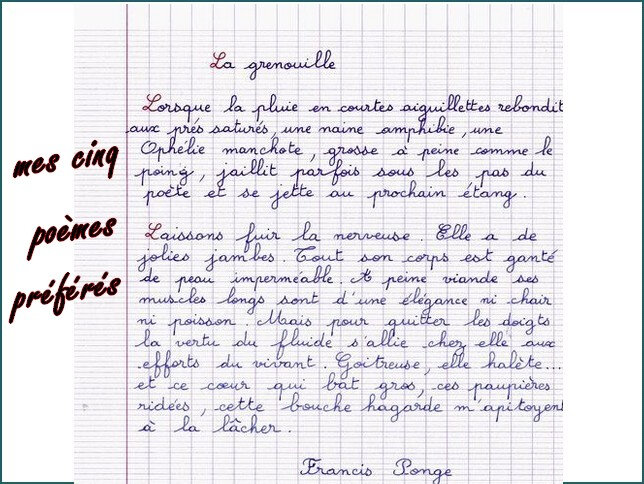 La grenouille
Lorsque la pluie en courtes aiguillettes rebondit
aux prés saturés, une naine amphibie, une
Ophélie manchote, grosse à peine comme le
poing, jaillit parfois sous les pas du
poète et se jette au prochain étang.
Laissons fuir la nerveuse. Elle a de
jolies jambes. Tout son corps est ganté
de peau imperméable. A peine viande ses
muscles longs sont d'une élégance ni chair
ni poisson. Mais pour quitter les doigts
la vertu du fluide s'allie chez elle aux
efforts du vivant. Goitreuse, elle halète...
et ce cœur qui bat gros, ces paupières
ridées, cette bouche hagarde m'apitoyent
à la lâcher.
Francis Ponge
mes cinq
poèmes
préférés